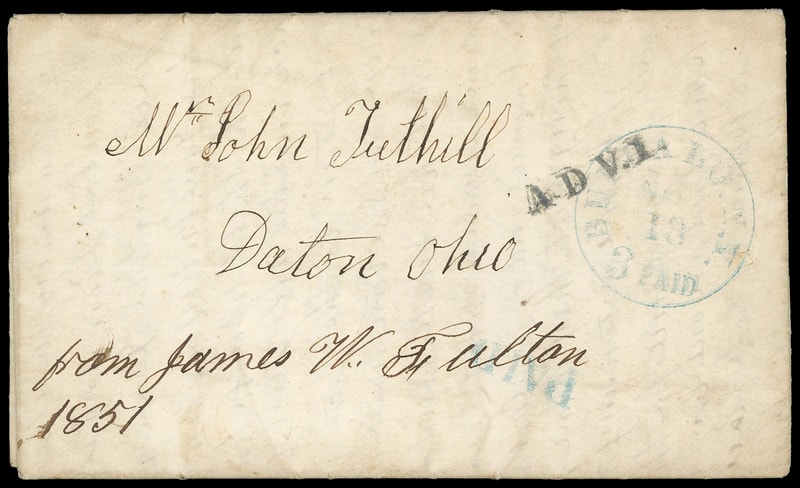 Mr John Tuthill
Daton Ohio
from James W. Fulton
1851
ADV.1.
BUFFALO N.Y.
13
3 PAID
PAID